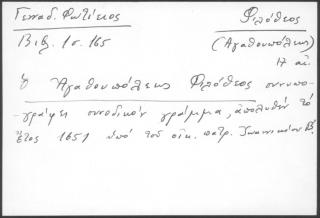 Γενναδ. Φωτίειος
Βιβ. 1. σ. 165
Φιλόθεος
(Αγαθουπόλεως)
17 αι.
ὁ Ἀγαθουπόλεως Φιλόθεος συνυπο-
γράφει συνοδικὸν γράμμα, ἀπολυθὲν τὸ
ἔτος 1651 ὑπὸ τοῦ οἰκ. πατρ. Ἰωαννικίου Β!